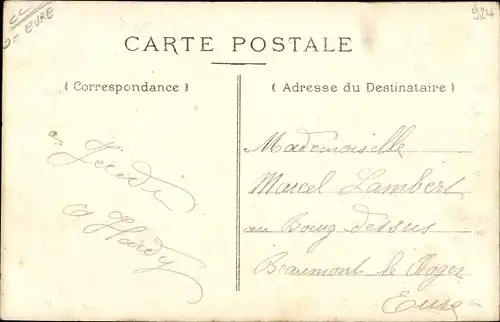 CC
EURE
924
CARTE POSTALE
( Correspondance )
( Adresse du Destinataire )
à Jeudi
A Hardy
Mademoiselle
Marcel Lambert
au Bourg dessus
Beaumont le Roger
Eure